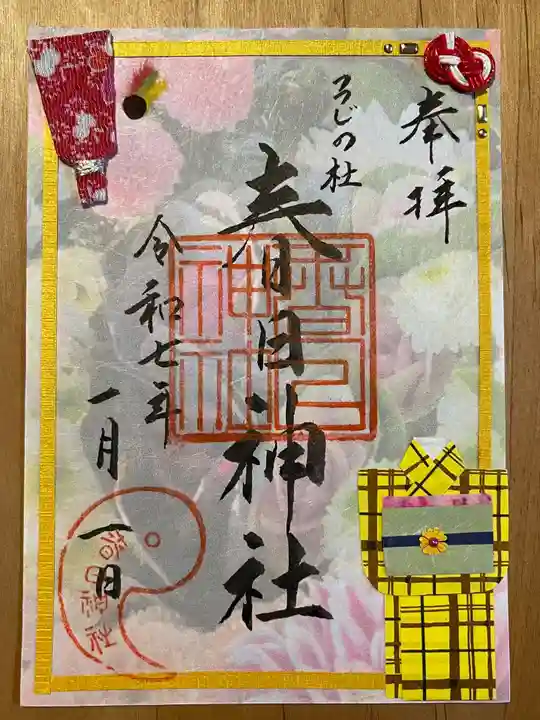 奉拝
ろじの杜
春日神社
令和七年
一月一日
春日神社
春日神社